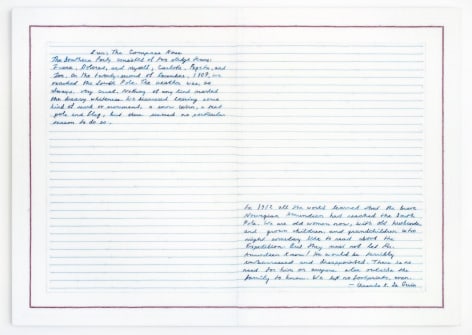 Eva, The Compass Nose
The Southern Party consisted of two sledge teams:
Juana, Dolores, and myself; Carlota, Pepita, and
Zoe. On the twenty-second of December, 1909, we
reached the South Pole. The weather was, as
always, very cruel. Nothing of any kind marked
the dreary whiteness. We discussed leaving some
kind of mark or monument, a snow cairn, a tent
pole and flag; but there seemed no particular
reason to do so.
In 1912 all the world learned that the brave
Norwegian Amundsen had reached the South
Pole. We are old women now, with old husbands
and grown children, and grandchildren who
might someday like to read about the
Expedition. But they must not let Mr.
Amundsen know! He would be terribly
embarrassed and disappointed. There is no
need for him or anyone else outside the
family to know. We left no footprints, even.
– Ursula K. Le Guin